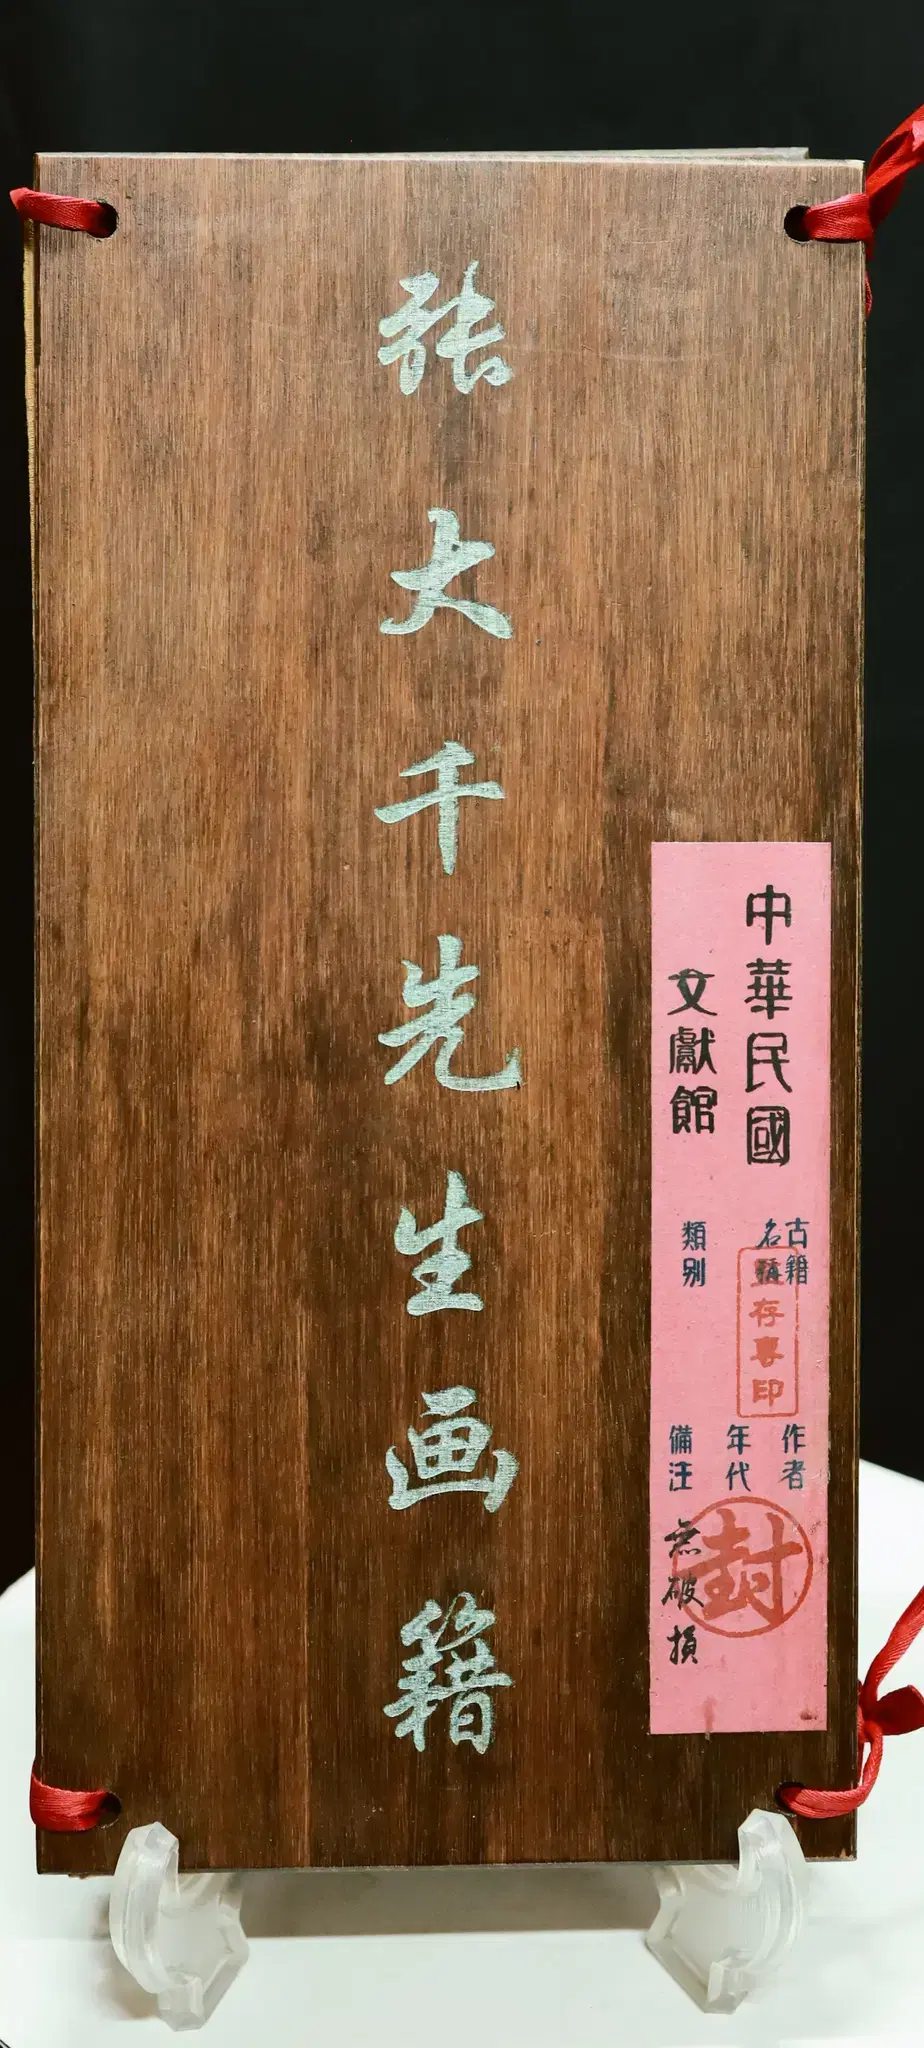 张大千先生画籍
中華民國
文獻館
古籍
名稱
類别
存專印
作者
年代
備注
無破損
封